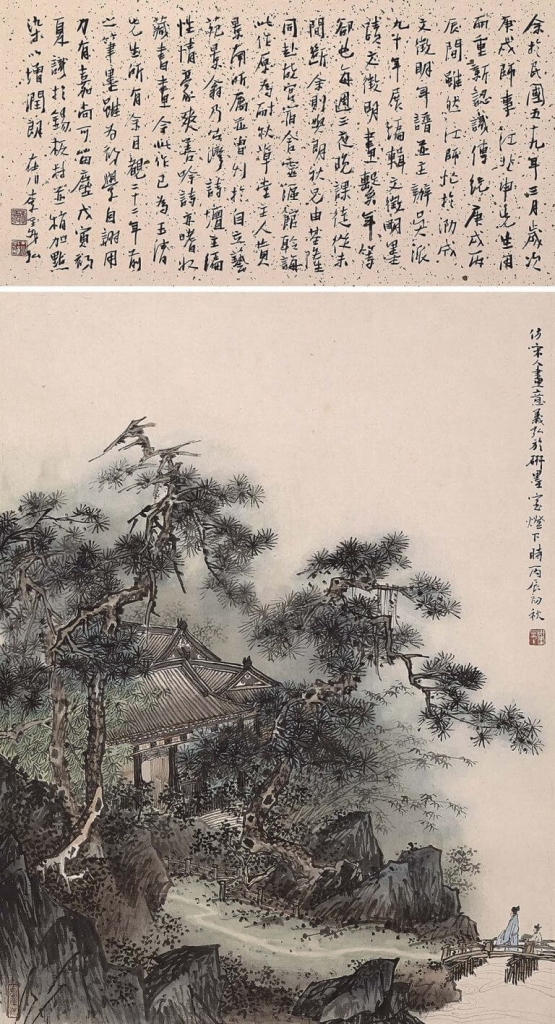 余於民國五十九年三月歲次
庚戌師事 江兆申先生因
而重新認識傳統庚戌丙
辰間雖然江師忙於 成
文徵明年譜並主辦吳派
九十年展編輯文徵明墨
蹟文徵明畫繫年等
卻也每週三夜晚課徒從未
間斷余則與朗秋兄由基隆
同赴故宮宿舍靈漚館聆誨
此作原為耐秋草堂主人黃
景南所屬並曾刊於自立藝
苑景翁乃台灣詩壇主
性情豪爽善吟詩亦嗜收
藏書畫今此作已為玉清
先生所有余自觀二十二年前
之筆墨雖為初學自謝用
力有嘉尚可留 戊寅初
夏識於錫板村 加點
染以增潤朗 在川居
仿宋人畫意義弘於研墨室燈下時丙辰初秋